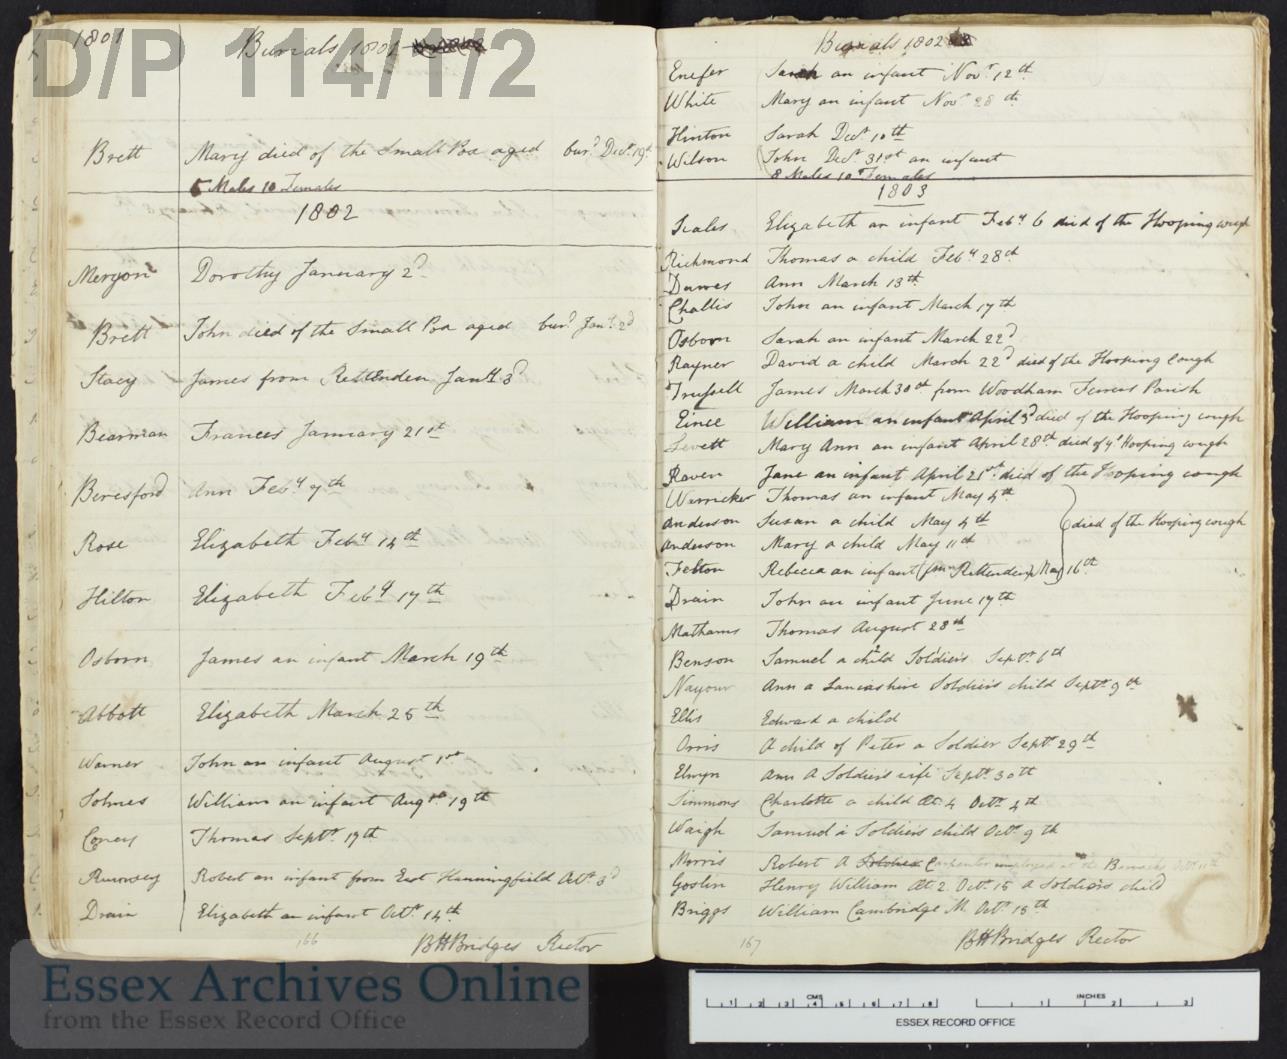 1801
D/P 114/1/2
Burials 1801
Brett Mary died of the Small Pox aged burd. Decr. 19th
5 Males 10 Females
1802
Meryon Dorothy January 2d
Brett John died of the Small Pox aged burd. Jany. 2d
Stacy James from Rettenden Jany 3d
Bearman Frances January 21st
Beresford Ann Feby 7th
Rose Elizabeth Feby 14th
Hilton Elizabeth Feby 17th
Osborn James an infant March 19th
Abbott Elizabeth March 25th
Warner John an infant August 1st
William an infant Augst 19th
Thomas Septr. 17th
Robert an infant from East Hanningfield Octr. 3d
Drain Elizabeth an infant Octr. 14th
166
BHBridges Rector
Burials 1802
Enefer Sarah an infant Novr. 12th
White Mary an infant Novr 28th
Hinton Sarah Decr 10th
Wilson John Decr. 31st an infant
8 Males 10 Females
1803
Scales Elizabeth an infant Feby 6 died of the Hooping cough
Richmond Thomas a child Feby 28th
Dawes Ann March 13th
Challis John an infant March 17th
Osborn Sarah an infant March 22d
Rayner David a child March 22d died of the Hooping Cough
James March 30th from Woodham Ferrers Parish
Einee William an infant April 3d died of the Hooping cough
Levett Mary Ann an infant April 28th died of ye Hooping cough
Raven Jane an infant April 21st died of the Hooping cough
Warricker Thomas an infant May 4th
Anderson Susan a child May 4th died of the Hooping cough
Anderson Mary a child May 11th
Felton Rebecca an infant (from Rettenden) May 16th
Drain John an infant June 17th
Mathams Thomas August 28th
Benson Samuel a child Soldier's Septr. 6th
Nayour Ann a Lancashire Soldier's child Septr. 9th
Ellis Edward a child
Orris A child of Peter a Soldier Septr. 29th
Elwyn Ann A Soldier's wife Septr. 30th
Simmons Charlotte a child Æt. 4 Octr. 4th
Waigh Samuel a Soldier's child Octr. 9th
Morris Robert A Carpenter employed at the Barracks Octr. 11th
Goslin Henry William Æt 2. Octr. 15 a Soldier's child
Briggs William Cambridge M. Octr. 18th
167
BHBridges Rector
Essex Archives Online
from the Essex Record Office
CMS
1 2 3 4 5 6 7 8
INCHES
1 2 3
ESSEX RECORD OFFICE